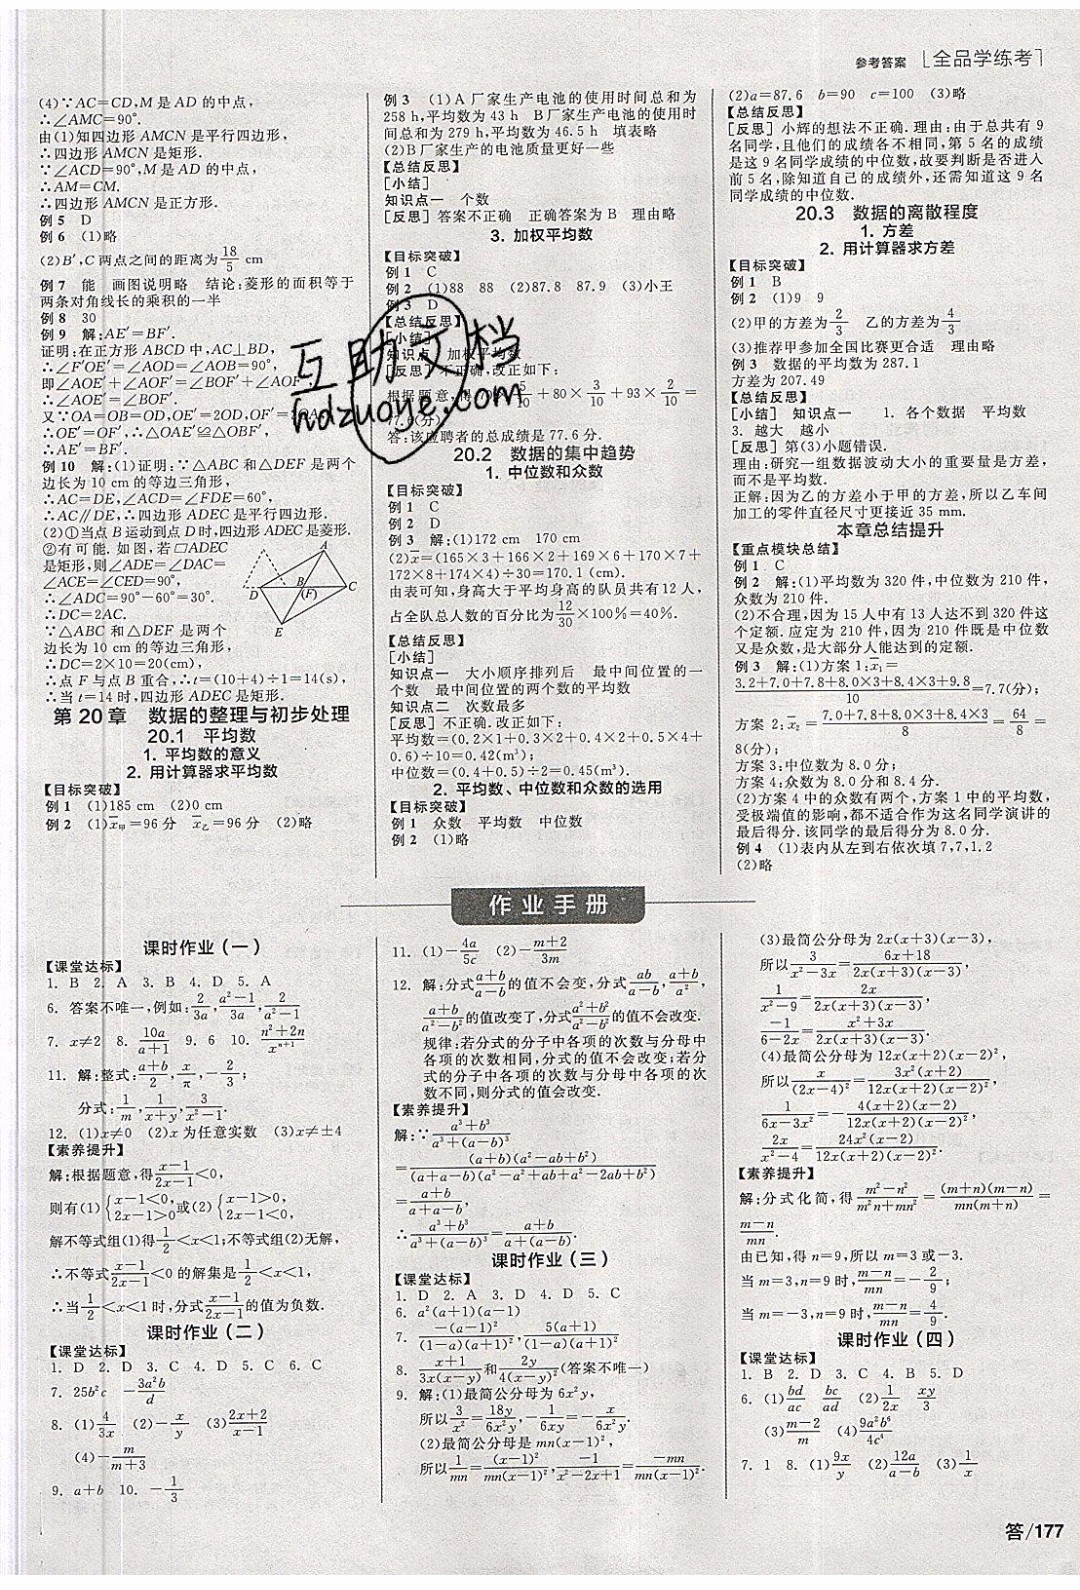 参考答案 [全品学练考]
(4)∵AC=CD,M是AD的中点,
∴∠AMC=90°.
由(1)知四边形AMCN是平行四边形,
∴四边形AMCN是矩形.
∵∠ACD=90°,M是AD的中点,
∴AM=CM.
∴四边形AMCN是正方形.
例5 D
例6 (1)略
(2)B′,C两点之间的距离为18/5 cm
例7 能 画图说明略 结论:菱形的面积等于
两条对角线长的乘积的一半
例8 30
例9 解:AE′=BF′.
证明:在正方形ABCD中,AC⊥BD,
∴∠F′OE′=∠AOD=∠AOB=90°,
即∠AOE′+∠AOF′=∠BOF′+∠AOF′,
∴∠AOE′=∠BOF′.
又∵OA=OB=OD,OE′=2OD,OF′=2OA,
∴OE′=OF′,∴△OAE′≌△OBF′,
∴AE′=BF′.
例10 解:(1)证明:∵△ABC和△DEF是两个
边长为10 cm的等边三角形,
∴AC=DE,∠ACD=∠FDE=60°,
∴AC∥DE,∴四边形ADEC是平行四边形.
(2)①当点B运动到点D时,四边形ADEC是菱形.
②有可能.如图,若▱ADEC
是矩形,则∠ADE=∠DAC=
∠ACE=∠CED=90°,
∴∠ADC=90°-60°=30°.
∴DC=2AC.
∵△ABC和△DEF是两个
边长为10 cm的等边三角形,
∴DC=2×10=20(cm),
∴点F与点B重合,∴t=(10+4)÷1=14(s),
∴当t=14时,四边形ADEC是矩形.
A
D B (F) C
E
第20章 数据的整理与初步处理
20.1 平均数
1. 平均数的意义
2. 用计算器求平均数
【目标突破】
例1 (1)185 cm (2)0 cm
例2 (1)x̄甲=96分 x̄乙=96分 (2)略
例3 (1)A厂家生产电池的使用时间总和为
258 h,平均数为43 h B厂家生产电池的使用时
间总和为279 h,平均数为46.5 h 填表略
(2)B厂家生产的电池质量更好一些
【总结反思】
[小结]
知识点一 个数
[反思] 答案不正确 正确答案为B 理由略
3. 加权平均数
【目标突破】
例1 C
例2 (1)88 88 (2)87.8 87.9 (3)小王
例3 D
【总结反思】
[小结]
知识点 加权平均数
[反思] 不正确.改正如下:
根据题意,得70×5/10+80×3/10+93×2/10=
77.6(分).
答:该应聘者的总成绩是77.6分.
互助文档
hdzuoye.com
20.2 数据的集中趋势
1. 中位数和众数
【目标突破】
例1 C
例2 D
例3 解:(1)172 cm 170 cm
(2)x̄=(165×3+166×2+169×6+170×7+
172×8+174×4)÷30=170.1(cm).
由表可知,身高大于平均身高的队员共有12人,
占全队总人数的百分比为12/30×100%=40%.
【总结反思】
[小结]
知识点一 大小顺序排列后 最中间位置的一
个数 最中间位置的两个数的平均数
知识点二 次数最多
[反思] 不正确.改正如下:
平均数=(0.2×1+0.3×2+0.4×2+0.5×4+
0.6)÷10=0.42(m³);
中位数=(0.4+0.5)÷2=0.45(m³).
2. 平均数、中位数和众数的选用
【目标突破】
例1 众数 平均数 中位数
例2 (1)略
(2)a=87.6 b=90 c=100 (3)略
【总结反思】
[反思] 小辉的想法不正确.理由:由于总共有9
名同学,且他们的成绩各不相同,第5名的成绩
是这9名同学成绩的中位数,故要判断是否进入
前5名,除知道自己的成绩外,还需知道这9名
同学成绩的中位数.
20.3 数据的离散程度
1. 方差
2. 用计算器求方差
【目标突破】
例1 B
例2 (1)9 9
(2)甲的方差为2/3 乙的方差为4/3
(3)推荐甲参加全国比赛更合适 理由略
例3 数据的平均数为287.1
方差为207.49
【总结反思】
[小结] 知识点一 1. 各个数据 平均数
3. 越大 越小
[反思] 第(3)小题错误.
理由:研究一组数据波动大小的重要量是方差,
而不是平均数.
正解:因为乙的方差小于甲的方差,所以乙车间
加工的零件直径尺寸更接近35 mm.
本章总结提升
【重点模块总结】
例1 C
例2 解:(1)平均数为320件,中位数为210件,
众数为210件.
(2)不合理,因为15人中有13人达不到320件这
个定额.应定为210件,因为210件既是中位数
又是众数,是大部分人能达到的定额.
例3 解:(1)方案1:x̄₁=
(3.2+7.0+7.8+8.0×3+8.4×3+9.8)/10=7.7(分);
方案2:x̄₂=(7.0+7.8+8.0×3+8.4×3)/8=64/8=
8(分);
方案3:中位数为8.0分;
方案4:众数为8.0分和8.4分.
(2)方案4中的众数有两个,方案1中的平均数,
受极端值的影响,都不适合作为这名同学演讲的
最后得分.该同学的最后得分为8.0分.
例4 (1)表内从左到右依次填7,7,1.2
(2)略
作业手册
课时作业(一)
【课堂达标】
1. B 2. A 3. B 4. D 5. A
6. 答案不唯一,例如:2/3a,(a²-1)/3a,2/(a²-1)
7. x≠2 8. 10a/(a+1) 9. 6 10. (n²+2n)/xⁿ⁺¹
11. 解:整式:(a+b)/2,x/π,-2/3;
分式:1/m,1/(x+y),3/(x²-1).
12. (1)x≠0 (2)x为任意实数 (3)x≠±4
【素养提升】
解:根据题意,得(x-1)/(2x-1)<0,
则有(1){x-1<0,2x-1>0或(2){x-1>0,2x-1<0,
解不等式组(1)得1/2<x<1;不等式组(2)无解,
∴不等式(x-1)/(2x-1)<0的解集是1/2<x<1,
∴当1/2<x<1时,分式(x-1)/(2x-1)的值为负数.
课时作业(二)
【课堂达标】
1. D 2. D 3. C 4. D 5. C 6. C
7. 25b²c -3a²b/d
8. (1)4/3x (2)-x/y (3)(2x+2)/(x-2)
(4)-m/(m+3)
9. a+b 10. -1/3
11. (1)-4a/5c (2)-(m+2)/3m
12. 解:分式(a+b)/(a-b)的值不会变,分式ab/(a-b),(a+b)/a²,
(a+b)/(a²-b²)的值改变了,分式(a²+b²)/(a²-b²)的值不会改变.
规律:若分式的分子中各项的次数与分母中
各项的次数相同,分式的值不会改变;若分
式的分子中各项的次数与分母中各项的次
数不同,则分式的值会改变.
【素养提升】
解:∵(a³+b³)/(a³+(a-b)³)
=(a+b)(a²-ab+b²)/((a+a-b)(a²-a²+ab+a²-2ab+b²))
=(a+b)/(a+a-b),
∴(a³+b³)/(a³+(a-b)³)=(a+b)/(a+(a-b)).
课时作业(三)
【课堂达标】
1. D 2. A 3. D 4. D 5. C
6. a²(a+1)(a-1)
7. -(a-1)²/((1-a)(a+1)²),5(a+1)/((1-a)(a+1)²)
8. (x+1)/(3x(x-y))和2y/(4(x-y)²)(答案不唯一)
9. 解:(1)最简公分母为6x²y,
所以3/x²=18y/6x²y,-1/6xy=-x/6x²y.
(2)最简公分母是mn(x-1)²,
所以1/mn=(x-1)²/(mn(x-1)²),-1/(x²-2x+1)=-mn/(mn(x-1)²).
(3)最简公分母为2x(x+3)(x-3),
所以3/(x²-3x)=(6x+18)/(2x(x+3)(x-3)),
1/(x²-9)=2x/(2x(x+3)(x-3)),
-1/(6-2x)=(x²+3x)/(2x(x+3)(x-3)).
(4)最简公分母为12x(x+2)(x-2)²,
所以x/(2x-4)²=3x²(x+2)/(12x(x+2)(x-2)²),
1/(6x-3x²)=-4(x+2)(x-2)/(12x(x+2)(x-2)²),
2x/(x²-4)=24x²(x-2)/(12x(x+2)(x-2)²).
【素养提升】
解:分式化简,得(m²-n²)/(m²n+mn²)=(m+n)(m-n)/(mn(m+n))=
(m-n)/mn.
由已知,得n=9,所以m=3或-3.
当m=3,n=9时,(m-n)/mn=-2/9;
当m=-3,n=9时,(m-n)/mn=4/9.
课时作业(四)
【课堂达标】
1. B 2. D 3. C 4. B 5. D
6. (1)bd/ac bc/ad (2)1/2x xy/3
(3)(m-2)/m (4)9a²b⁶/4c⁴
7. 1 8. (1)9x/y (2)12a/(a-b) (3)1/x
答/177